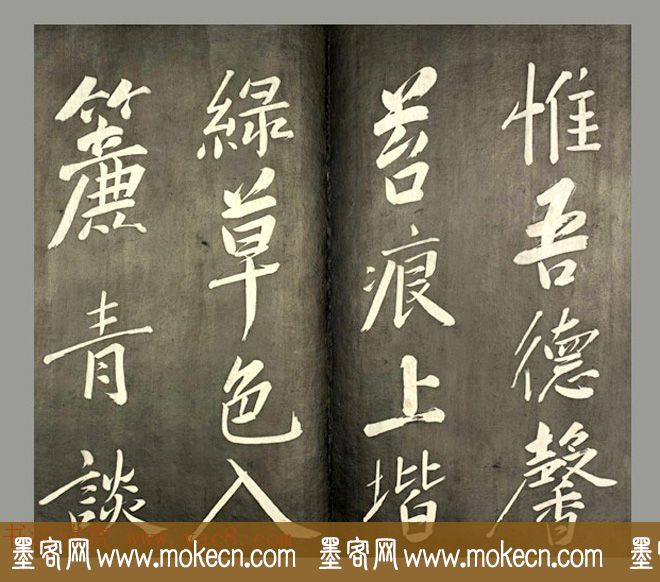 惟吾德馨
苔痕上堦
綠草色入
簾青談
墨客网 www.mokecn.com 墨客网 www.mokecn.com